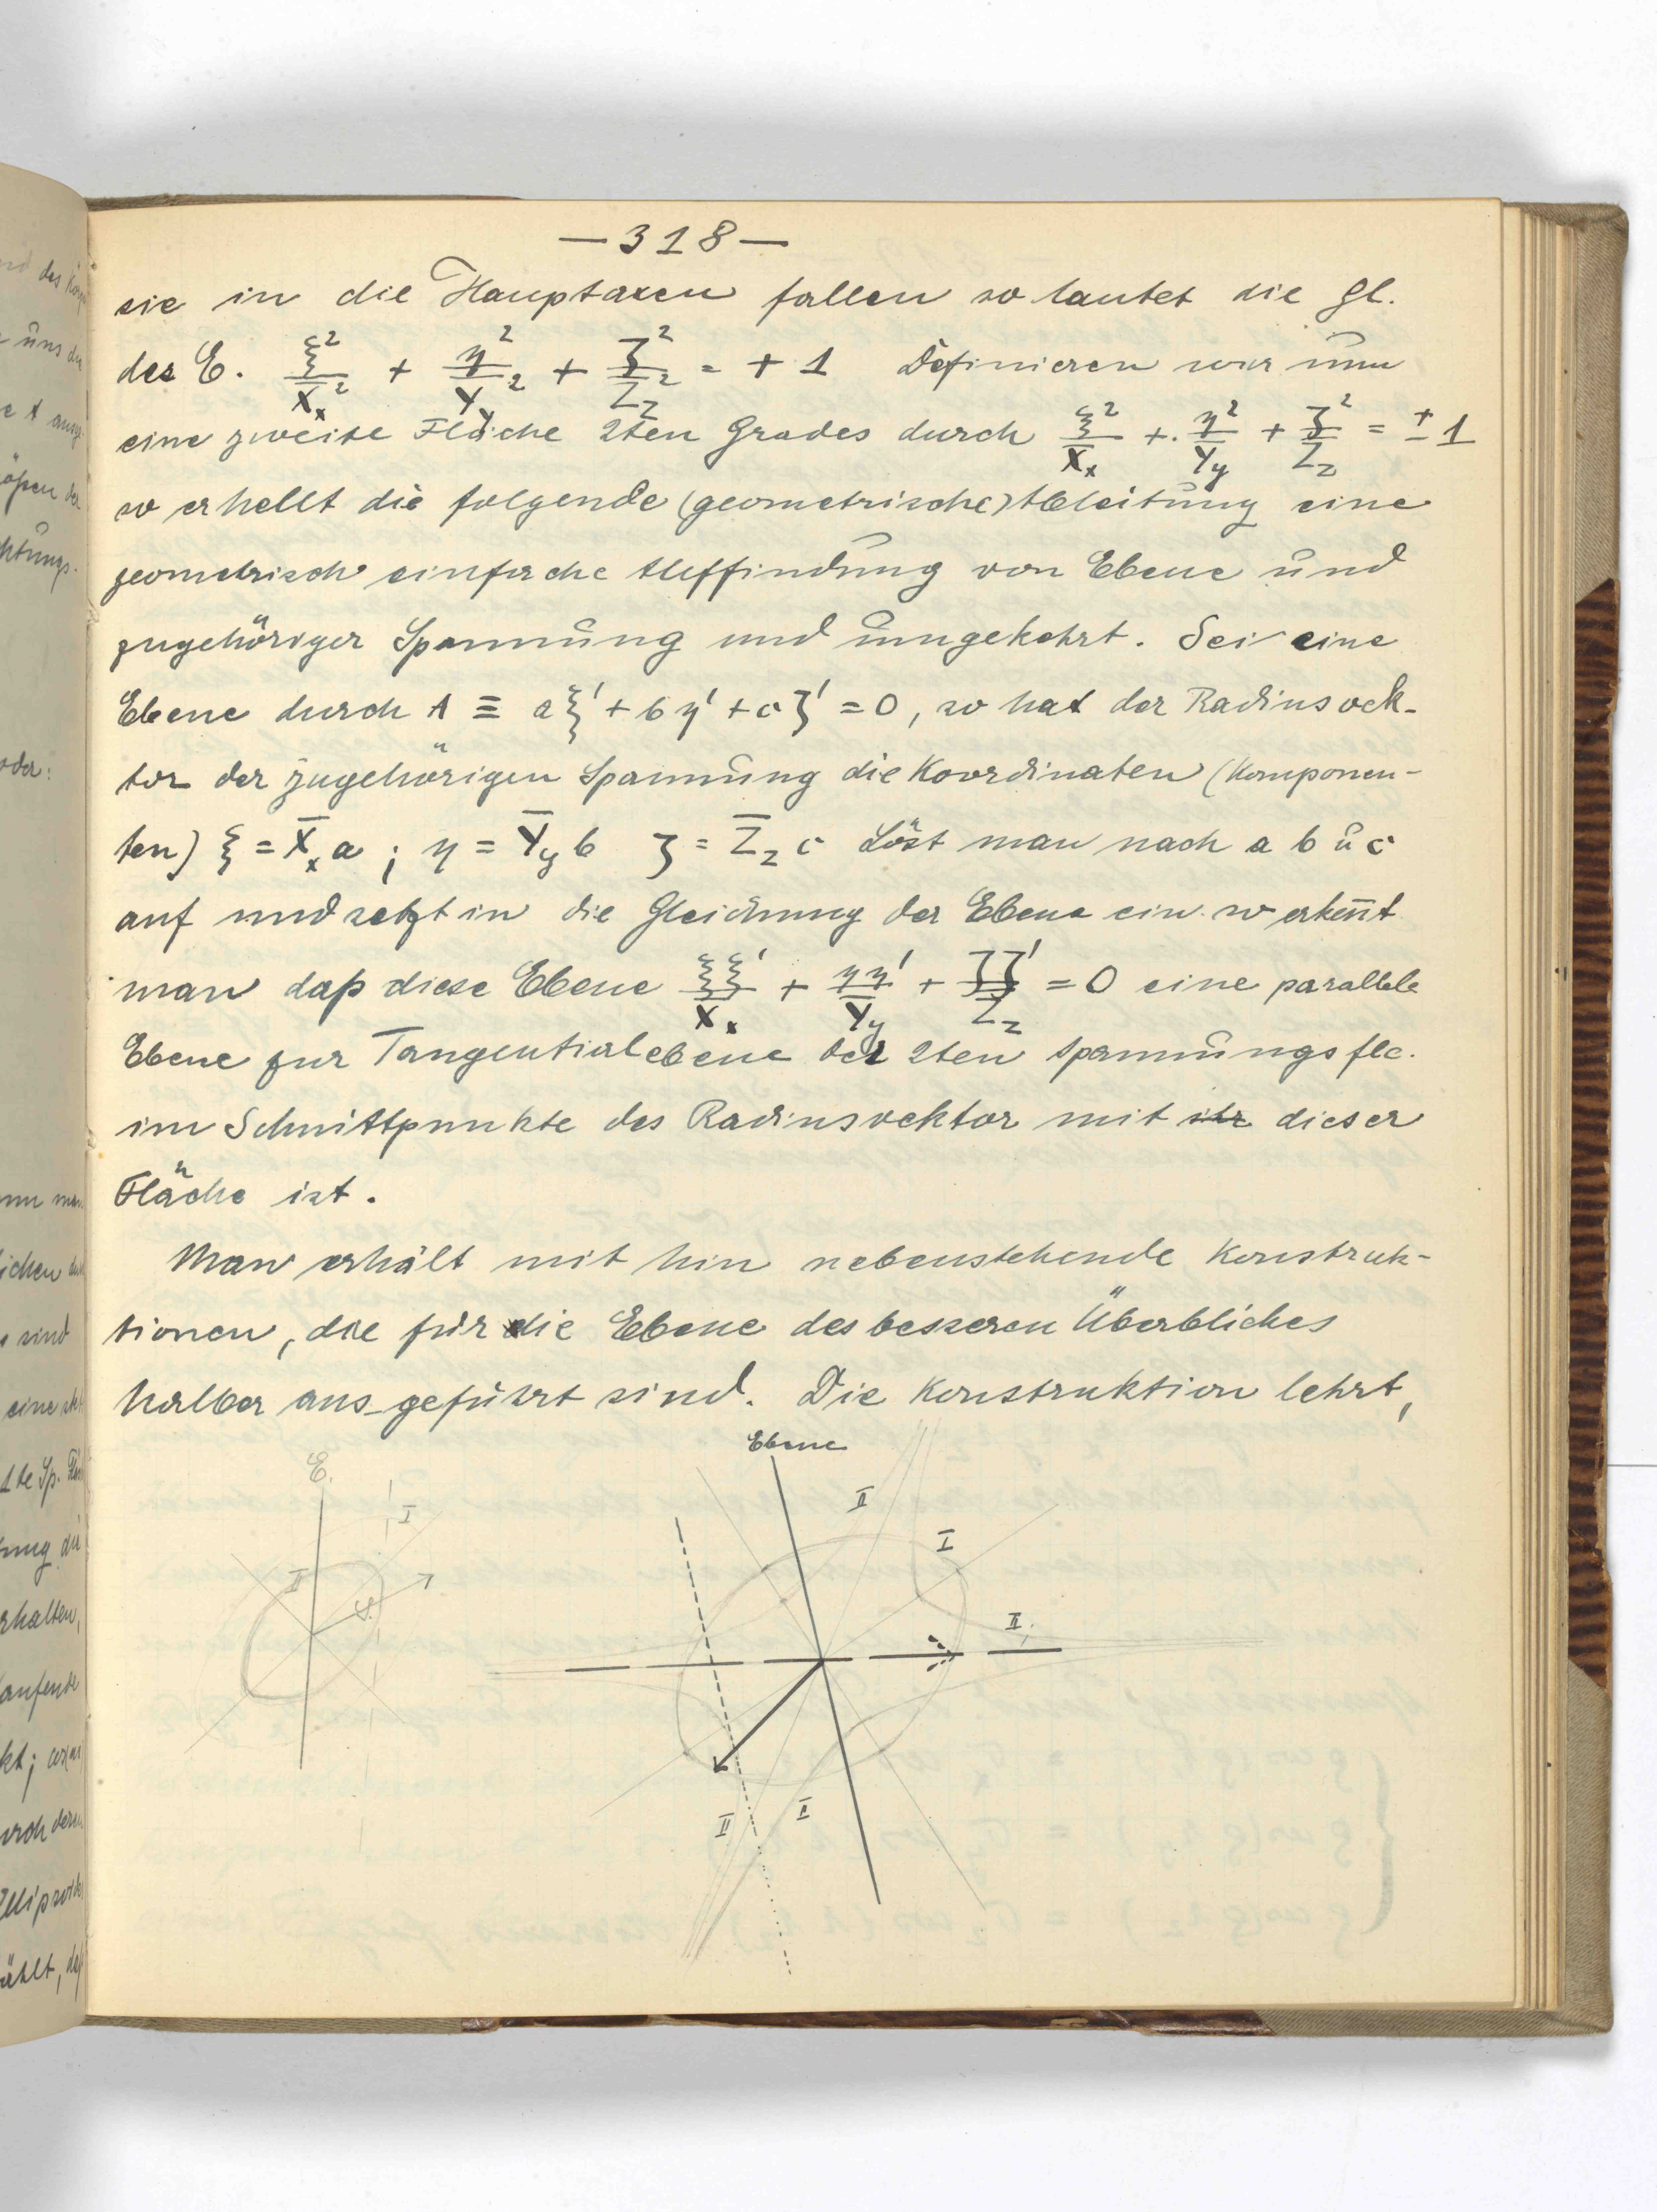 —318—
sie in die Hauptaxen fallen so lautet die Gl.
des E. ξ²/X̅ₓ² + η²/Y̅ᵧ² + ζ²/Z̅_z² = +1 Definieren wir nun
eine zweite Fläche 2ten Grades durch ξ²/X̅ₓ + η²/Y̅ᵧ + ζ²/Z̅_z = ±1
so erhellt die folgende (geometrische) Ableitung eine
geometrisch einfache Auffindung von Ebene und
zugehöriger Spannung und umgekehrt. Sei eine
Ebene durch A ≡ aξ' + bη' + cζ' = 0, so hat der Radiusvek-
tor der zugehörigen Spannung die Koordinaten (Komponen-
ten) ξ = X̅ₓa ; η = Y̅ᵧb ζ = Z̅_z c Löst man nach a b u c
auf und setzt in die Gleichung der Ebene ein so erkennt
man daß diese Ebene ξξ'/X̅ₓ + ηη'/Y̅ᵧ + ζζ'/Z̅_z = 0 eine parallele
Ebene zur Tangentialebene der 2ten Spannungsflc.
im Schnittpunkte des Radiusvektor mit ihr dieser
Fläche ist.
Man erhält mit hin nebenstehende Konstruk-
tionen, die für die Ebene des besseren Überblickes
halber ausgeführt sind. Die Konstruktion lehrt,
Ebene
E.
I
II
II
I
S.
II
II
I